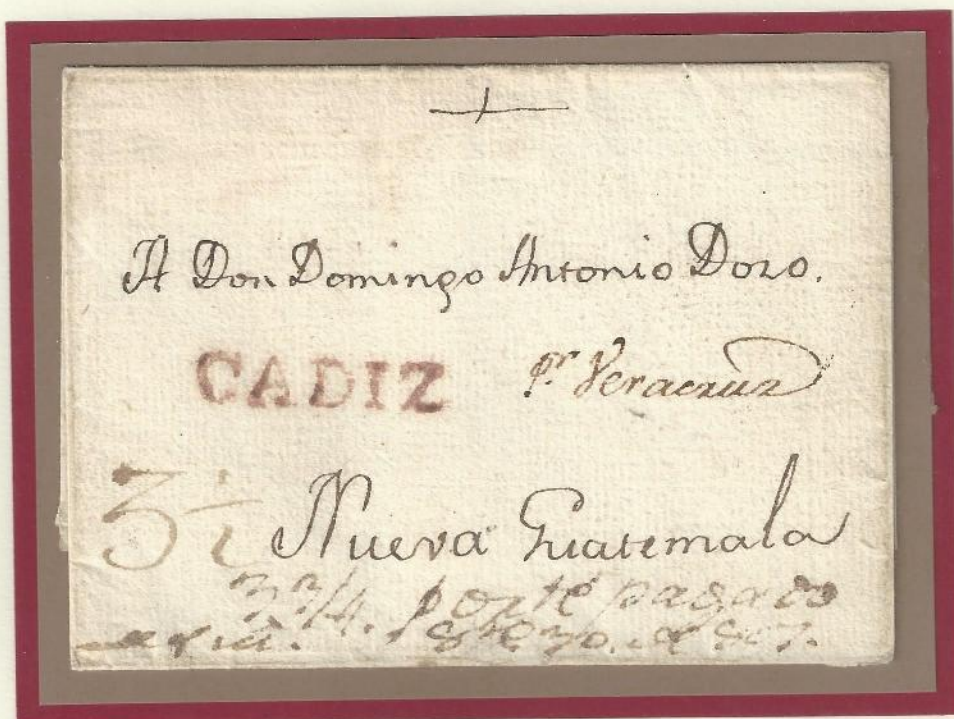 A Don Domingo Antonio Dozo.
CADIZ
pr. Veracruz
3½ Nueva Guatemala
3 3/4. Porte pagado